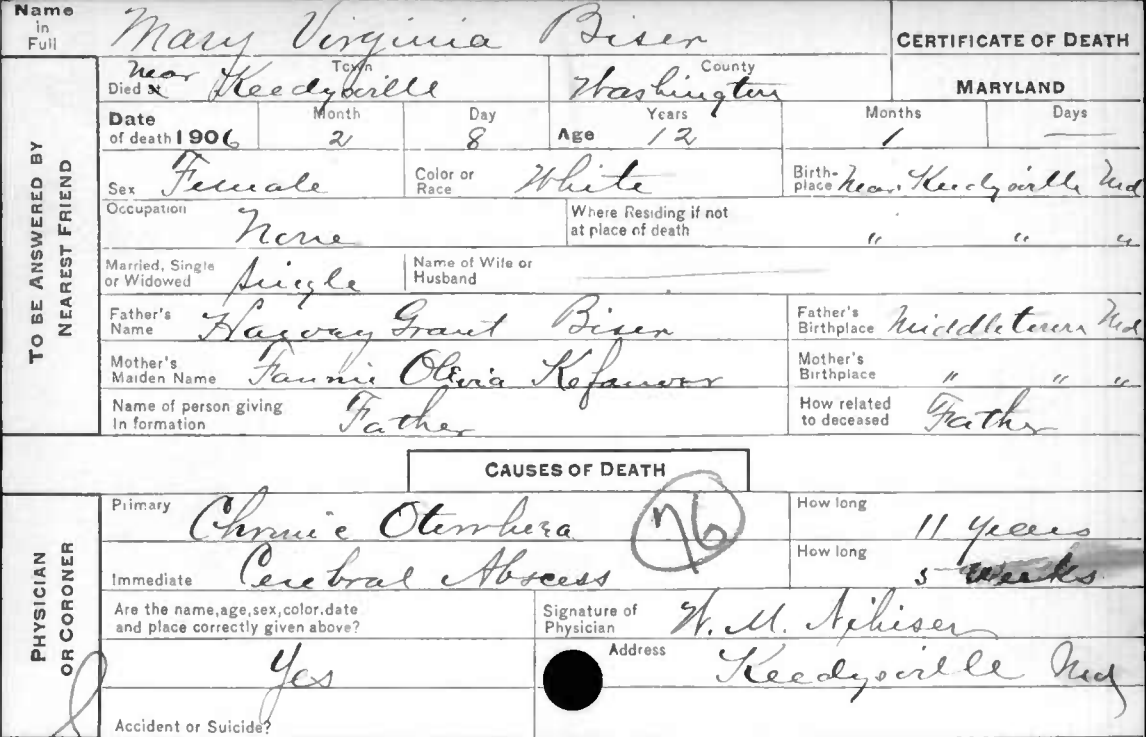 Name in Full Mary Virginia Biser
CERTIFICATE OF DEATH
TO BE ANSWERED BY NEAREST FRIEND
Died at near Town Keedysville County Washington MARYLAND
Date of death 1906 Month 2 Day 8 Age Years 12 Months 1 Days —
Sex Female Color or Race White Birth-place Near Keedysville Md
Occupation None Where Residing if not at place of death " " "
Married, Single or Widowed Single Name of Wife or Husband —
Father's Name Grant Biser Father's Birthplace Middletown Md
Mother's Maiden Name Fannie Olivia Kefauver Mother's Birthplace " " "
Name of person giving In formation Father How related to deceased Father
CAUSES OF DEATH
PHYSICIAN OR CORONER
Primary Chronic Otorrhea 76 How long 11 Years
Immediate Cerebral Abscess How long weeks
Are the name,age,sex,color.date and place correctly given above? Yes
Signature of Physician W. M. Nihiser
Address Keedysville Md
Accident or Suicide?